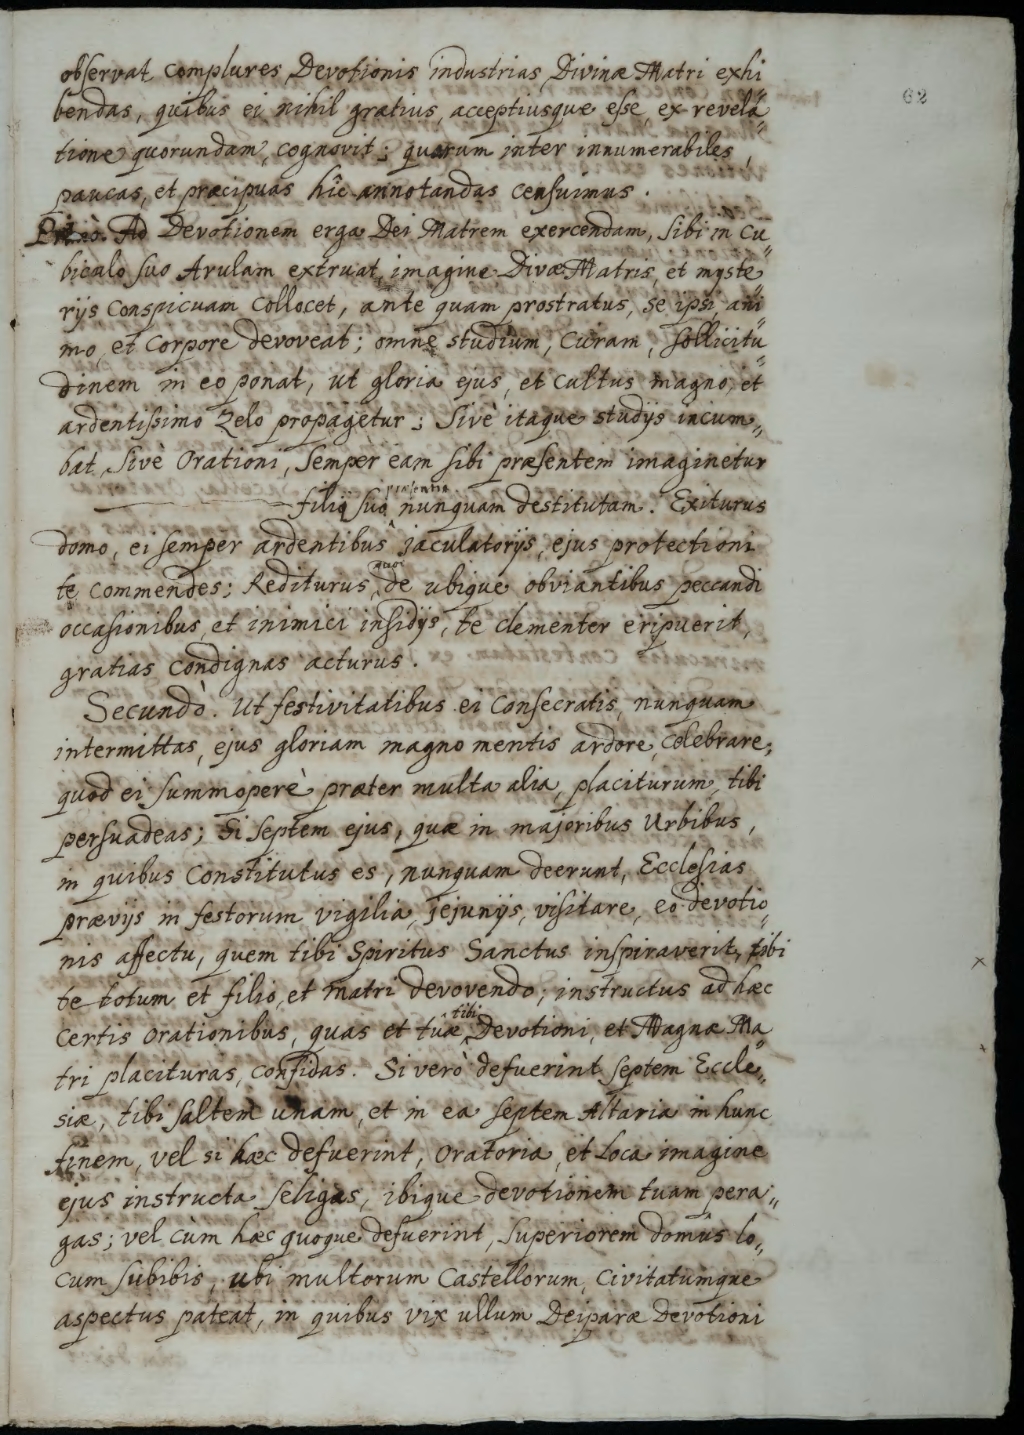 62
observat complures Devotionis industrias Divinæ Matri exhi
bendas, quibus ei nihil gratius, acceptiusque esse, ex revela„
tione quorundam, cognovit; quarum inter innumerabiles,
paucas, et præcipuas hic annotandas censuimus.
Ad Devotionem erga Dei Matrem exercendam, sibi in Cu„
biculo suo Arulam extruat, imagine Divæ Matris, et myste„
rijs Conspicuam Collocet, ante quam prostratus, se ipsi, ani„
mo, et Corpore devoveat; omne studium, Curam, sollicitu„
dinem in eo ponat, ut gloria ejus, et Cultus magno, et
ardentissimo Zelo propagetur; Sivè itaque studijs incum„
bat, Sivè Orationi, Sempèr eam sibi præsentem imaginetur
præsentia
filij suo nunquam destitutam. Exiturus
domo, ei semper ardentibus jaculatorijs, ejus protectioni
te Commendes; Rediturus, de ubique obviantibus peccandi
occasionibus, et inimici insidijs, te clementer eripuerit,
gratias Condignas acturus.
Secundò. Ut festivitatibus ei Consecratis, nunquam
intermittas, ejus gloriam magno mentis ardore, Celebrare,
quod ei summoperè præter multa alia, placiturum, tibi
persuadeas; Si septem ejus, quæ in majoribus Urbibus,
in quibus Constitutus es, nunquam deerunt, Ecclesias
prævijs in festorum vigilia, jejunijs, visitare, eo devotio„
nis affectu, quem tibi Spiritus Sanctus inspiraverit, tibi
te totum et filio, et Matri devovendo; instructus ad hæc
tibi
Certis Orationibus, quas et tuæ Devotioni, et Magnæ Ma„
tri placituras, Confidas. Si verò defuerint septem Eccle„
siæ, tibi saltem unam, et in ea septem Altaria in hunc
finem, vel si hæc defuerint, Oratoria, et Loca imagine
ejus instructa seligas, ibique devotionem tuam pera„
gas; vel cùm hæc quoque defuerint, superiorem domûs lo„
cum subibis, ubi multorum Castellorum, Civitatumque
aspectus pateat, in quibus vix ullum Deiparæ Devotioni